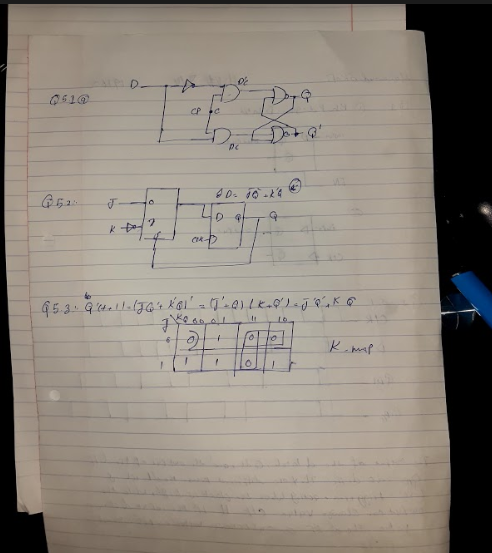 Q5.1 (a)
D
D'C
Q
CP
C
DC
Q'
Q5.2:
J
K
D = JQ' + K'Q
D
Q
Q
CLK
Q5.3: Q'(t+1) = (JQ' + K'Q)' = (J'+Q) (K+Q') = J'Q' + K Q
J KQ 00 01 11 10
0 0 1 0 0
1 1 1 0 1
K-map